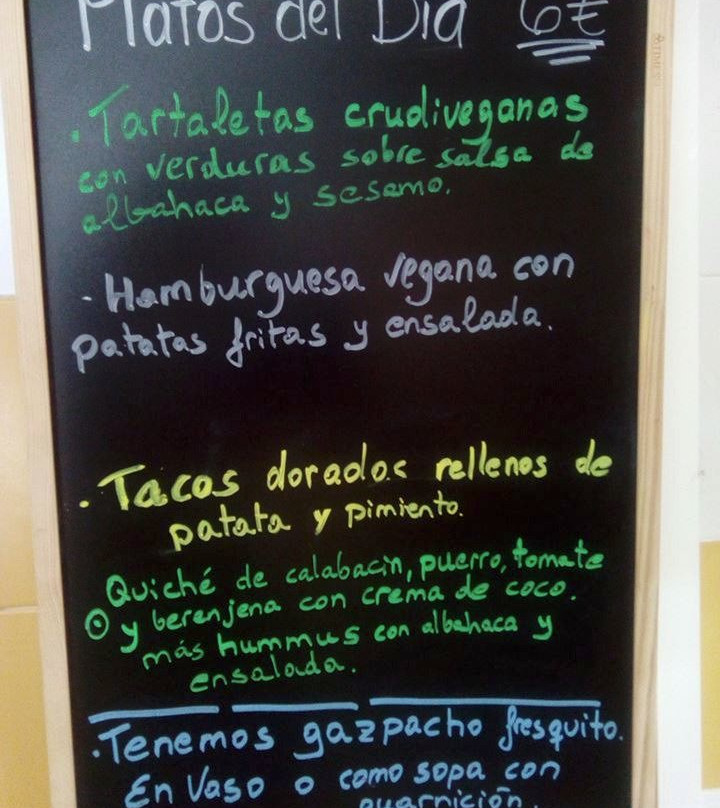 Platos del Dia 6€
. Tartaletas crudiveganas
con verduras sobre salsa de
albahaca y sesamo.
- Hamburguesa vegana con
patatas fritas y ensalada.
. Tacos dorados rellenos de
patata y pimiento.
Quiché de calabacin, puerro, tomate
y berenjena con crema de coco.
más hummus con albahaca y
ensalada.
. Tenemos gazpacho fresquito.
En Vaso o como sopa con
guarnición.